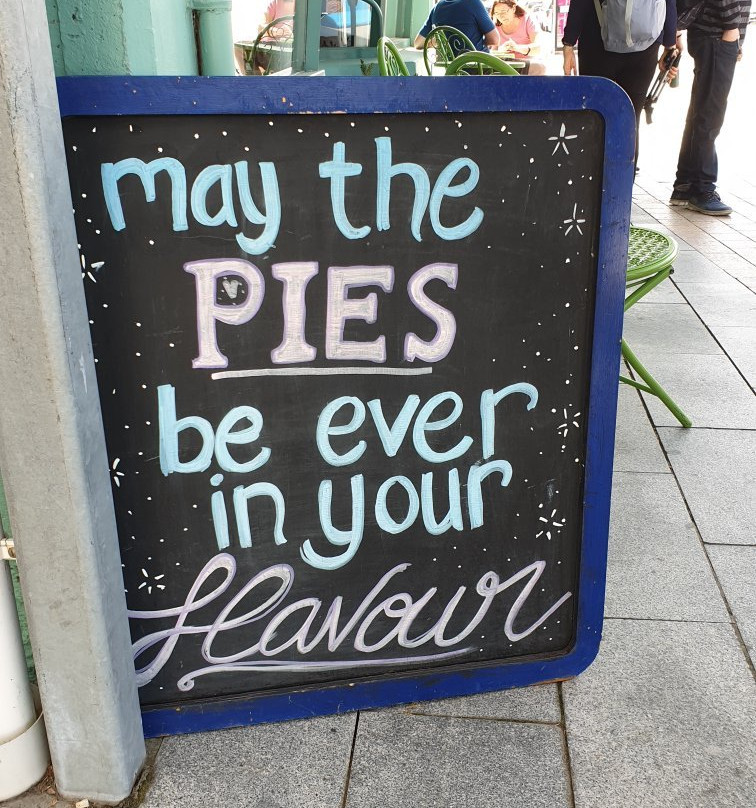 may the
PIES
be ever
in your
flavour